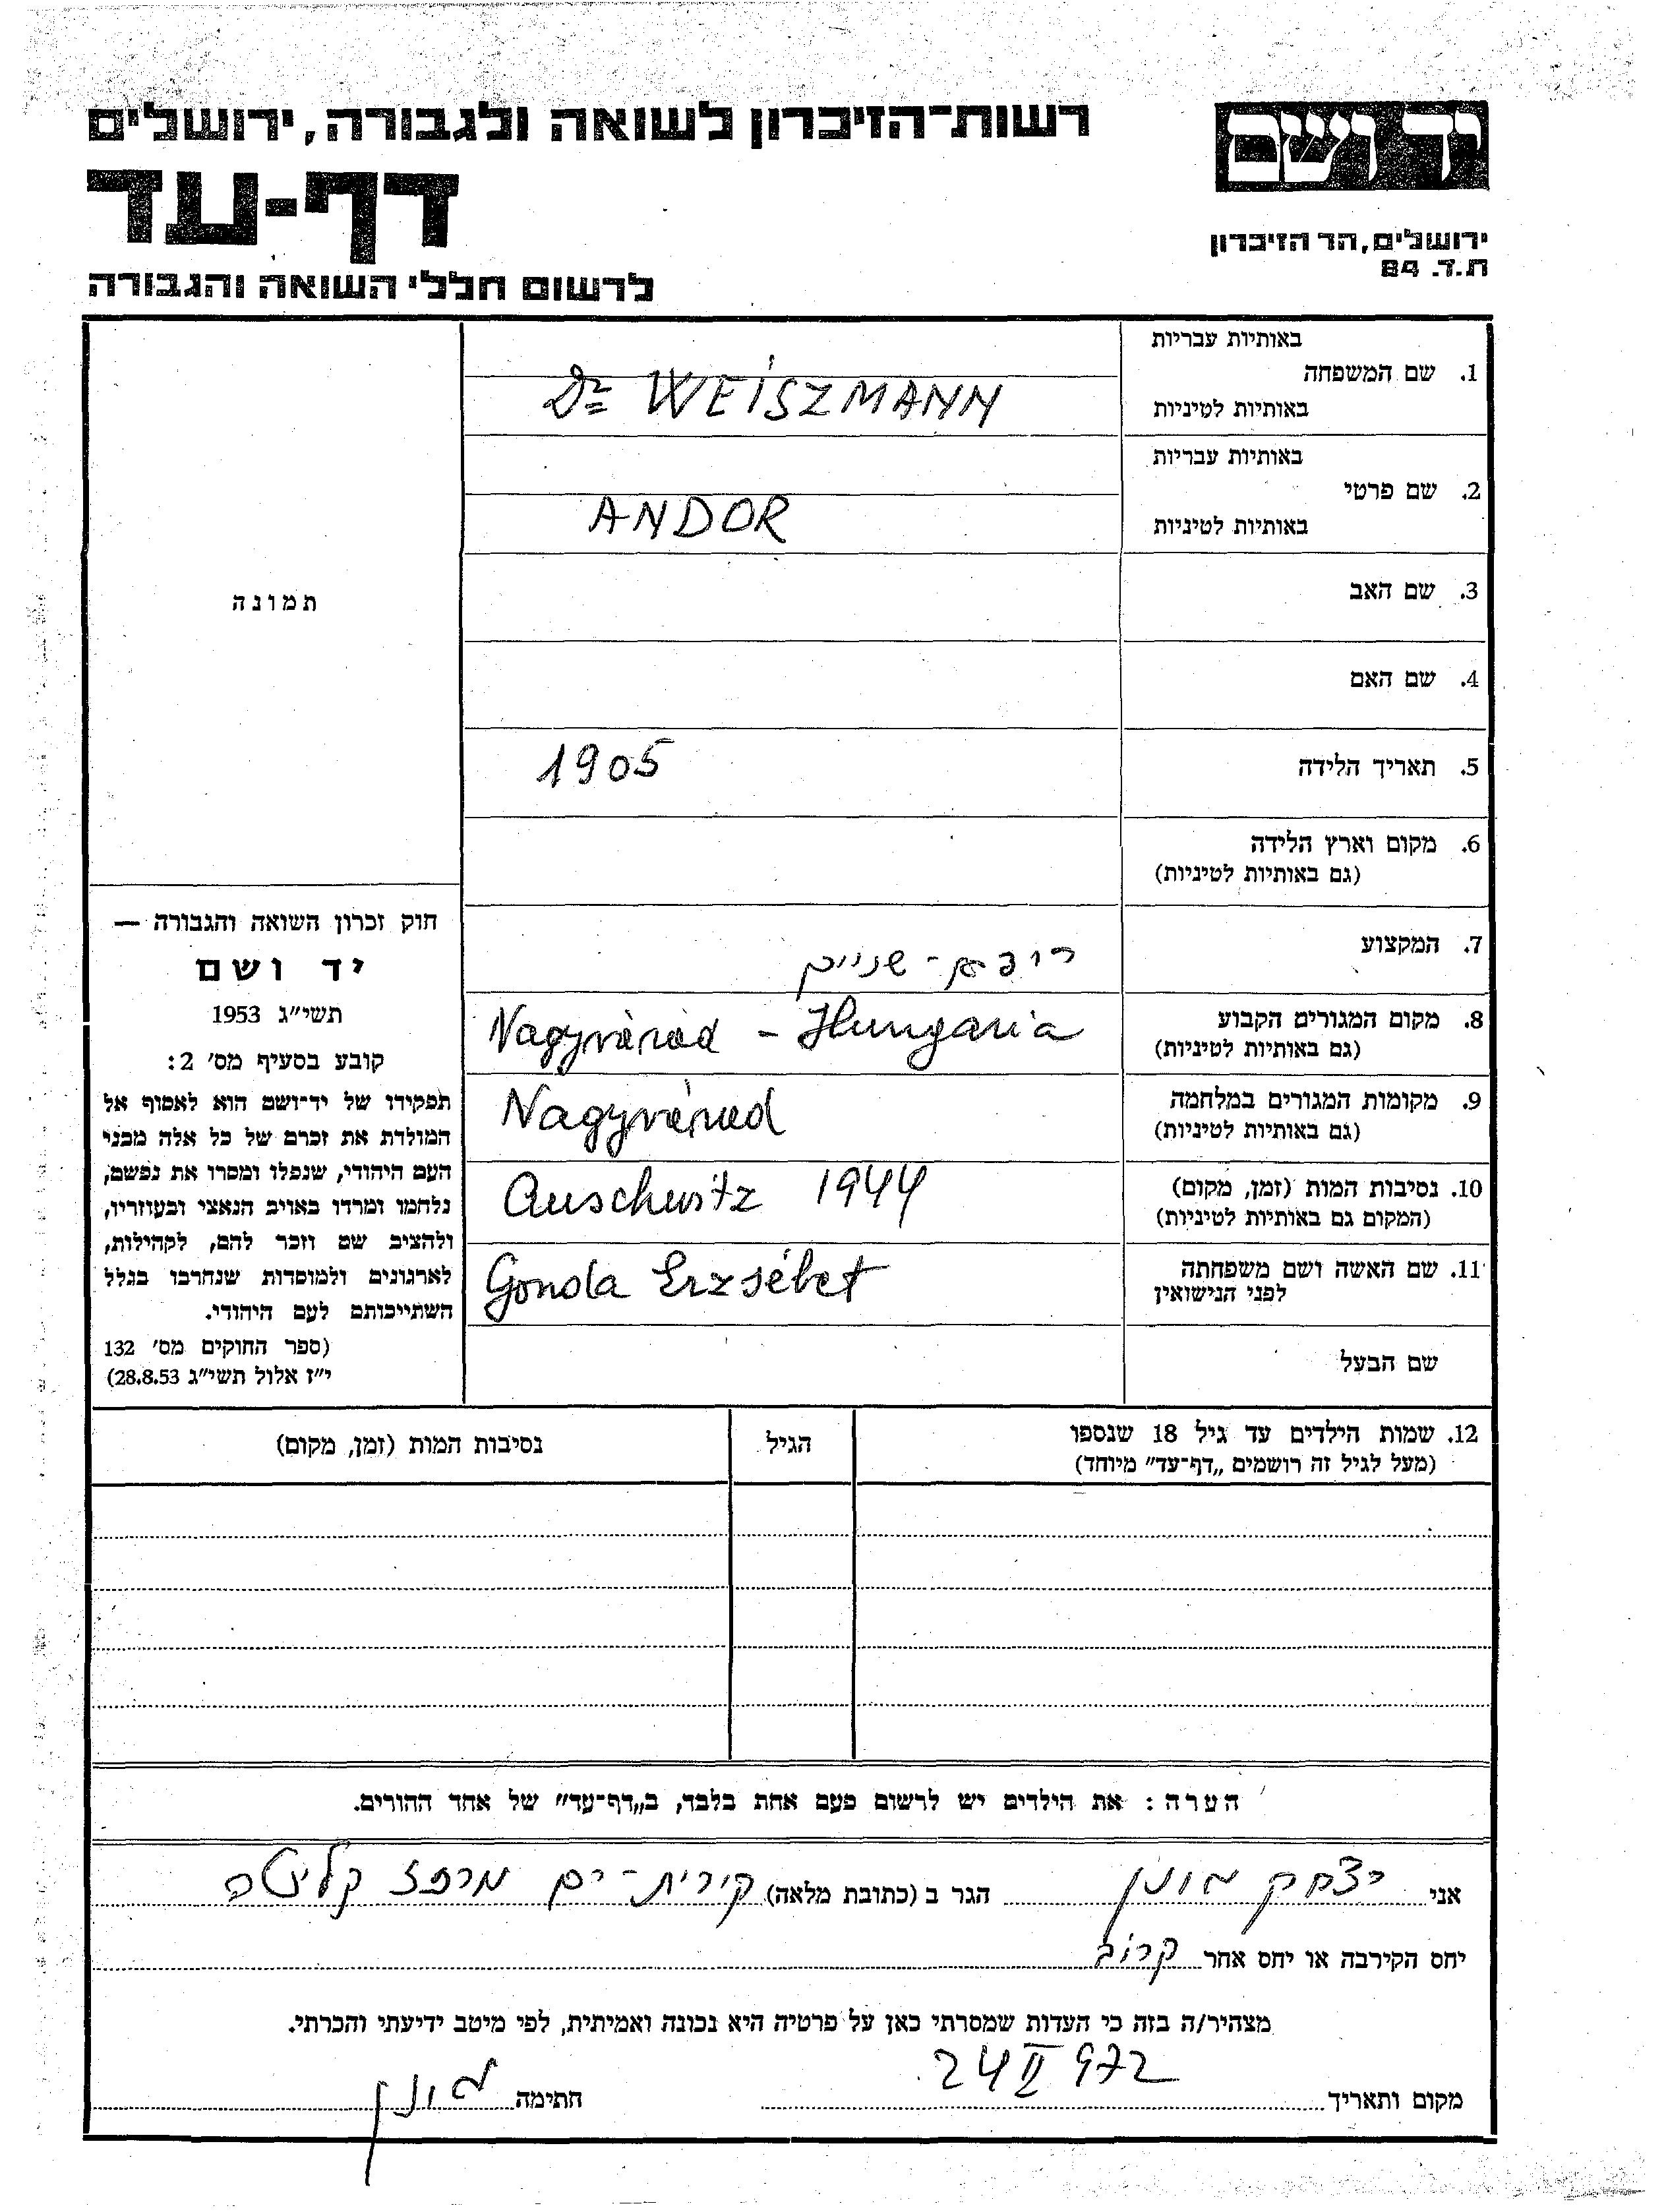 יד ושם
ירושלים, הר הזיכרון
ת.ד. 84
רשות-הזיכרון לשואה ולגבורה, ירושלים
דף-עד
לרשום חללי השואה והגבורה
באותיות עבריות
1. שם המשפחה
באותיות לטיניות
Dr WEISZMANN
באותיות עבריות
2. שם פרטי
באותיות לטיניות
ANDOR
3. שם האב
4. שם האם
5. תאריך הלידה 1905
6. מקום וארץ הלידה
(גם באותיות לטיניות)
7. המקצוע רופא-שניים
8. מקום המגורים הקבוע
(גם באותיות לטיניות)
Nagyvárad - Hungaria
9. מקומות המגורים במלחמה
(גם באותיות לטיניות)
Nagyvárad
10. נסיבות המות (זמן, מקום)
(המקום גם באותיות לטיניות)
Auschwitz 1944
11. שם האשה ושם משפחתה
לפני הנישואין
Gonda Erzsébet
שם הבעל
תמונה
חוק זכרון השואה והגבורה —
יד ושם
תשי״ג 1953
קובע בסעיף מס׳ 2:
תפקידו של יד־ושם הוא לאסוף אל
המולדת את זכרם של כל אלה מבני
העם היהודי, שנפלו ומסרו את נפשם,
נלחמו ומרדו באויב הנאצי ובעוזריו,
ולהציב שם וזכר להם, לקהילות,
לארגונים ולמוסדות שנחרבו בגלל
השתייכותם לעם היהודי.
(ספר החוקים מס׳ 132
י״ז אלול תשי״ג 28.8.53)
12. שמות הילדים עד גיל 18 שנספו
(מעל לגיל זה רושמים „דף־עד״ מיוחד)
הגיל
נסיבות המות (זמן, מקום)
הערה: את הילדים יש לרשום פעם אחת בלבד, ב„דף־עד״ של אחד ההורים.
אני יצחק הגר ב (כתובת מלאה) קירית-ים מרכז קליטה
יחס הקירבה או יחס אחר קרוב
מצהיר/ה בזה כי העדות שמסרתי כאן על פרטיה היא נכונה ואמיתית, לפי מיטב ידיעתי והכרתי.
מקום ותאריך 24 II 972 חתימה